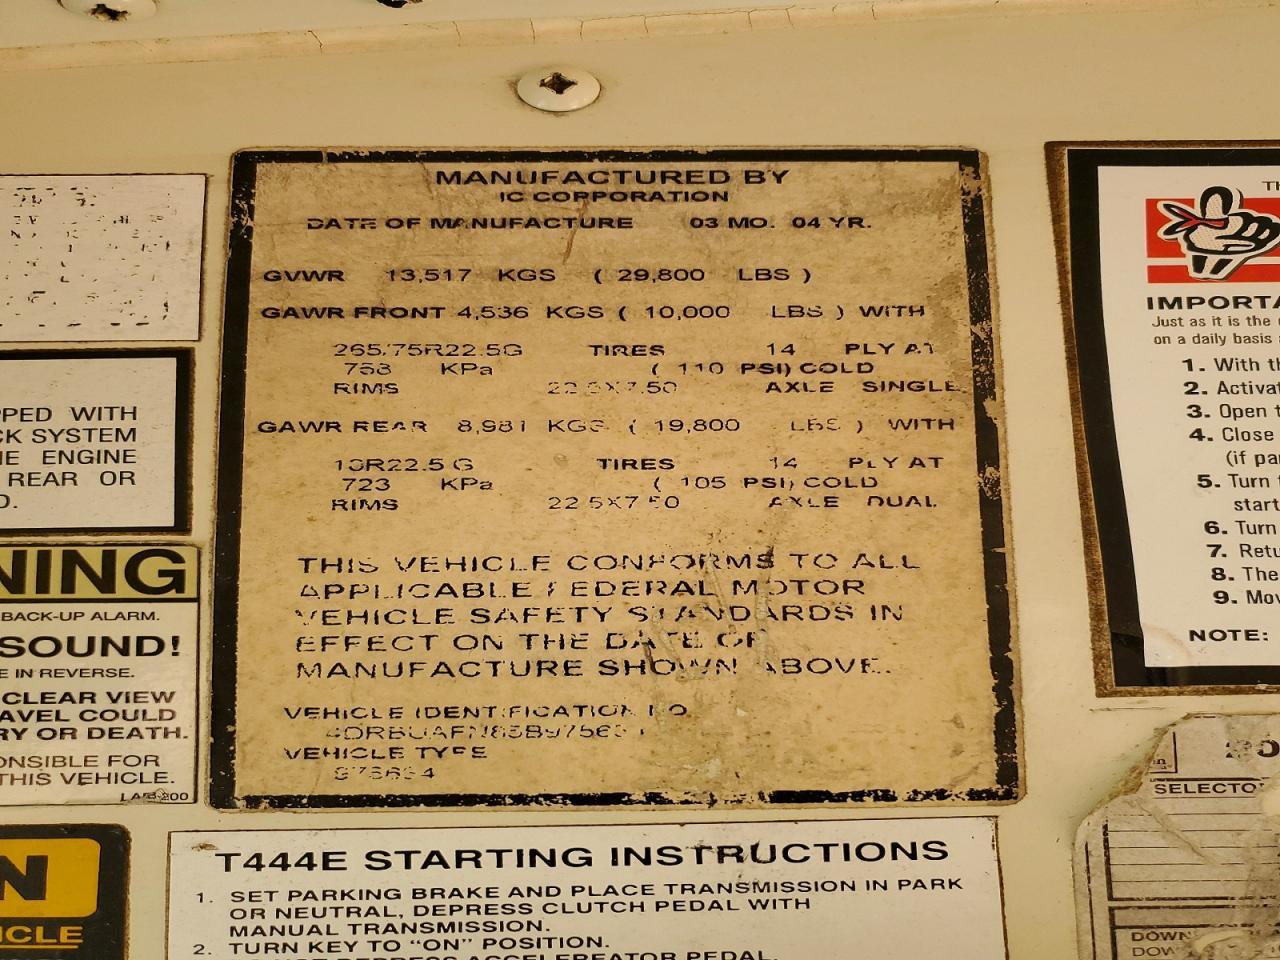 MANUFACTURED BY
IC CORPORATION
DATE OF MANUFACTURE 03 MO. 04 YR.
GVWR 13,517 KGS ( 29,800 LBS )
GAWR FRONT 4,536 KGS ( 10,000 LBS ) WITH
265/75R22.5G TIRES 14 PLY AT
758 KPa ( 110 PSI) COLD
RIMS 22.5X7.50 AXLE SINGLE
GAWR REAR 8,981 KGS ( 19,800 LBS ) WITH
10R22.5 G TIRES 14 PLY AT
723 KPa ( 105 PSI) COLD
RIMS 22.5X7.50 AXLE DUAL
THIS VEHICLE CONFORMS TO ALL
APPLICABLE FEDERAL MOTOR
VEHICLE SAFETY STANDARDS IN
EFFECT ON THE DATE OF
MANUFACTURE SHOWN ABOVE.
VEHICLE IDENTIFICATION NO
VEHICLE TYPE
PPED WITH
CK SYSTEM
HE ENGINE
REAR OR
D.
NING
BACK-UP ALARM.
SOUND!
E IN REVERSE.
CLEAR VIEW
AVEL COULD
RY OR DEATH.
ONSIBLE FOR
THIS VEHICLE.
N
ICLE
T444E STARTING INSTRUCTIONS
1. SET PARKING BRAKE AND PLACE TRANSMISSION IN PARK
OR NEUTRAL, DEPRESS CLUTCH PEDAL WITH
MANUAL TRANSMISSION.
2. TURN KEY TO "ON" POSITION.
DO NOT DEPRESS ACCELEREATOR PEDAL.
TH
IMPORTA
Just as it is the
on a daily basis
1. With th
2. Activat
3. Open t
4. Close
(if pa
5. Turn
start
6. Turn
7. Retu
8. The
9. Mov
NOTE:
SELECTO
DOWN
DOW